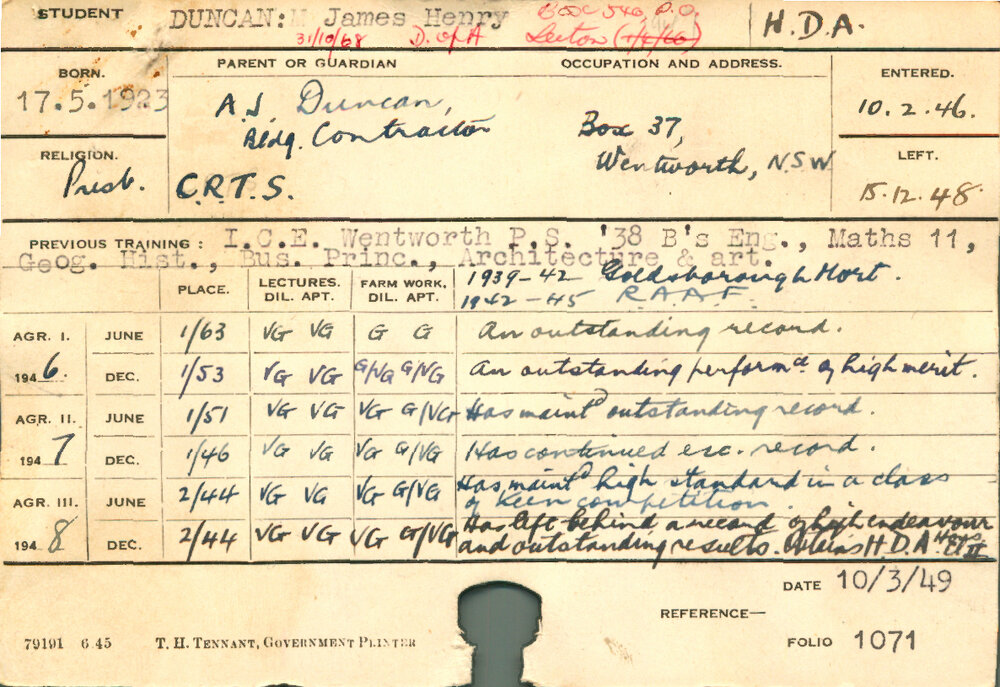 STUDENT DUNCAN: James Henry Box 546, P.O. H.D.A.
31/10/68 D. of A Leeton (1/6/66)
BORN. PARENT OR GUARDIAN OCCUPATION AND ADDRESS. ENTERED.
17.5.1923 A.J. Duncan, 10.2.46.
Bldg. Contractor Box 37,
RELIGION. Wentworth, NSW LEFT.
Presb. C.R.T.S. 15.12.48.
PREVIOUS TRAINING: I.C.E. Wentworth P.S. '38 B's Eng., Maths 11,
Geog. Hist., Bus. Princ., Architecture & art.
PLACE. LECTURES. DIL. APT. FARM WORK, DIL. APT. 1939-42 Goldsborough Mort.
1942-45 R.A.A.F.
AGR. I. JUNE 1/63 VG VG G G An outstanding record.
1946. DEC. 1/53 VG VG G/VG G/VG An outstanding performce of high merit.
AGR. II. JUNE 1/51 VG VG VG G/VG Has maintd outstanding record.
1947 DEC. 1/46 VG VG VG G/VG Has continued exc. record.
AGR. III. JUNE 2/44 VG VG VG G/VG Has maintd high standard in a class
of keen competition.
1948 DEC. 2/44 VG VG VG G/VG Has left behind a record of high endeavour
and outstanding results. Attains H.D.A. Hons. II
DATE 10/3/49
REFERENCE—
79191 6.45 T. H. TENNANT, GOVERNMENT PRINTER FOLIO 1071